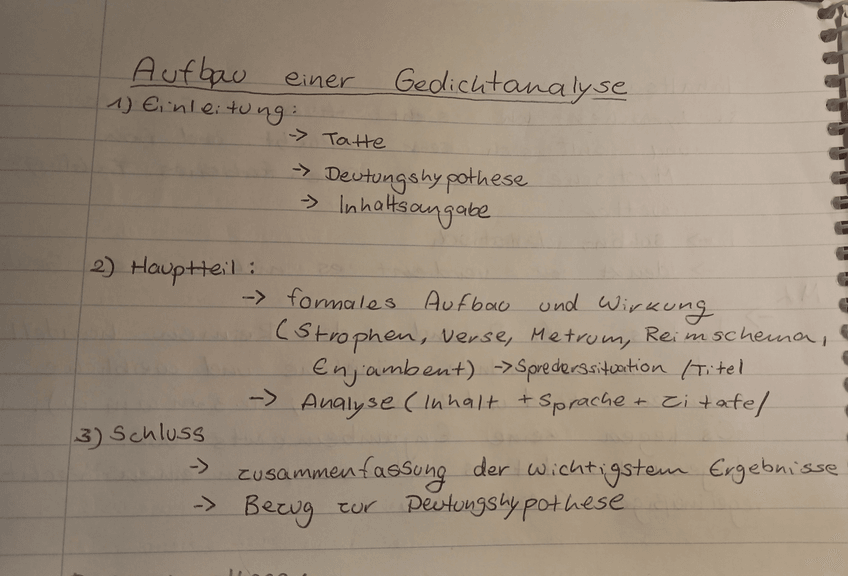 Aufbau einer Gedichtanalyse
1) Einleitung:
-> Tatte
-> Deutungshypothese
-> Inhaltsangabe
2) Hauptteil:
-> formales Aufbau und Wirkung
(Strophen, Verse, Metrum, Reimschema,
Enjambent) -> Sprederssituation /Titel
-> Analyse (Inhalt + Sprache + Zitate/
3) Schluss
-> zusammenfassung der wichtigstem Ergebnisse
-> Bezug zur Deutungshypothese